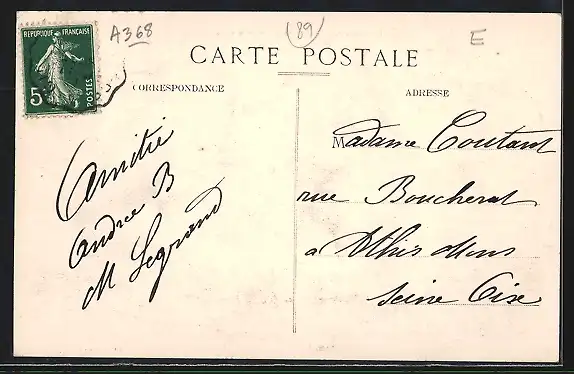 RÉPUBLIQUE FRANÇAISE
5c
POSTES
A368
89
E
CARTE POSTALE
CORRESPONDANCE
ADRESSE
Amitié
Andrée B
M Legrand
Madame Coutant
rue Boucherat
a Athis Mons
Seine Oise